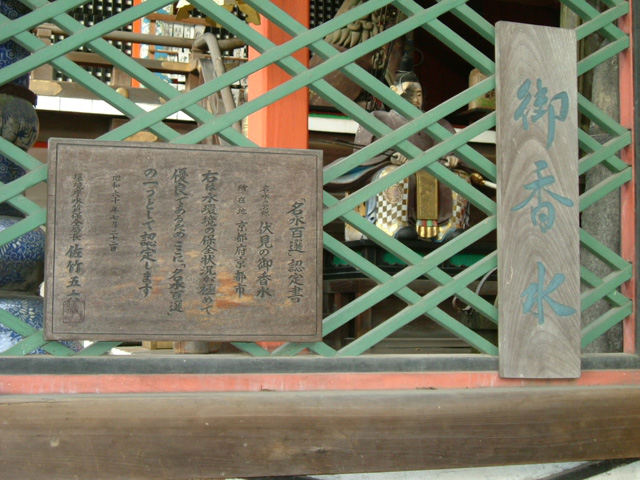 「名水百選」認定書
名水の名称 伏見の御香水
所在地 京都府京都市
右は水環境の保全状況が極めて
優良であるのでここに「名水百選」
の一つとして認定します
昭和六十年七月二十二日
環境庁水質保全局長 佐竹五六
御香水